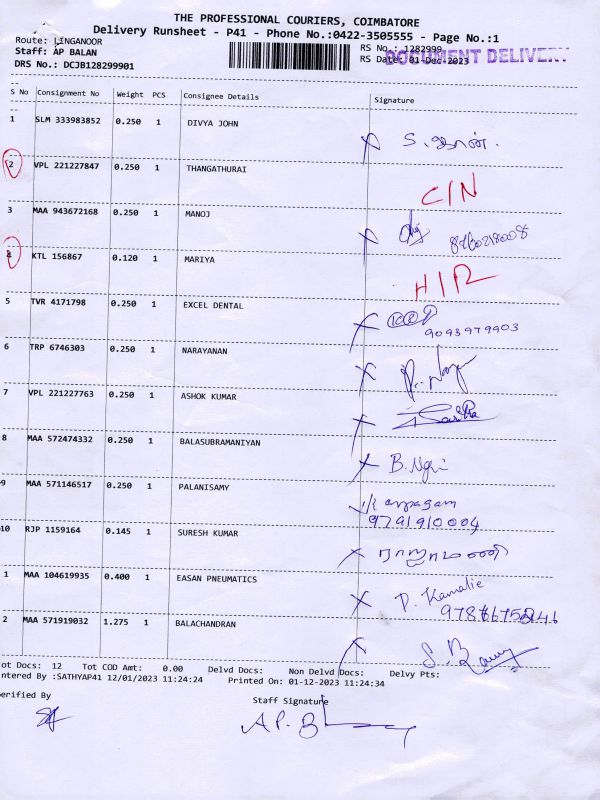 THE PROFESSIONAL COURIERS, COIMBATORE
Delivery Runsheet - P41 - Phone No.:0422-3505555 - Page No.:1
Route: LINGANOOR RS No. :1282999
Staff: AP BALAN RS Date: 01-Dec-2023 DOCUMENT DELIVERY
DRS No.: DCJB128299901
S No Consignment No Weight PCS Consignee Details Signature
1 SLM 333983852 0.250 1 DIVYA JOHN
2 VPL 221227847 0.250 1 THANGATHURAI C/N
3 MAA 943672168 0.250 1 MANOJ
4 KTL 156867 0.120 1 MARIYA
5 TVR 4171798 0.250 1 EXCEL DENTAL
9093979903
6 TRP 6746303 0.250 1 NARAYANAN
7 VPL 221227763 0.250 1 ASHOK KUMAR
8 MAA 572474332 0.250 1 BALASUBRAMANIYAN
9 MAA 571146517 0.250 1 PALANISAMY
9791910004
10 RJP 1159164 0.145 1 SURESH KUMAR
1 MAA 104619935 0.400 1 EASAN PNEUMATICS P. Kamalie
2 MAA 571919032 1.275 1 BALACHANDRAN
ot Docs: 12 Tot COD Amt: 0.00 Delvd Docs: Non Delvd Docs: Delvy Pts:
ntered By :SATHYAP41 12/01/2023 11:24:24 Printed On: 01-12-2023 11:24:34
erified By Staff Signature